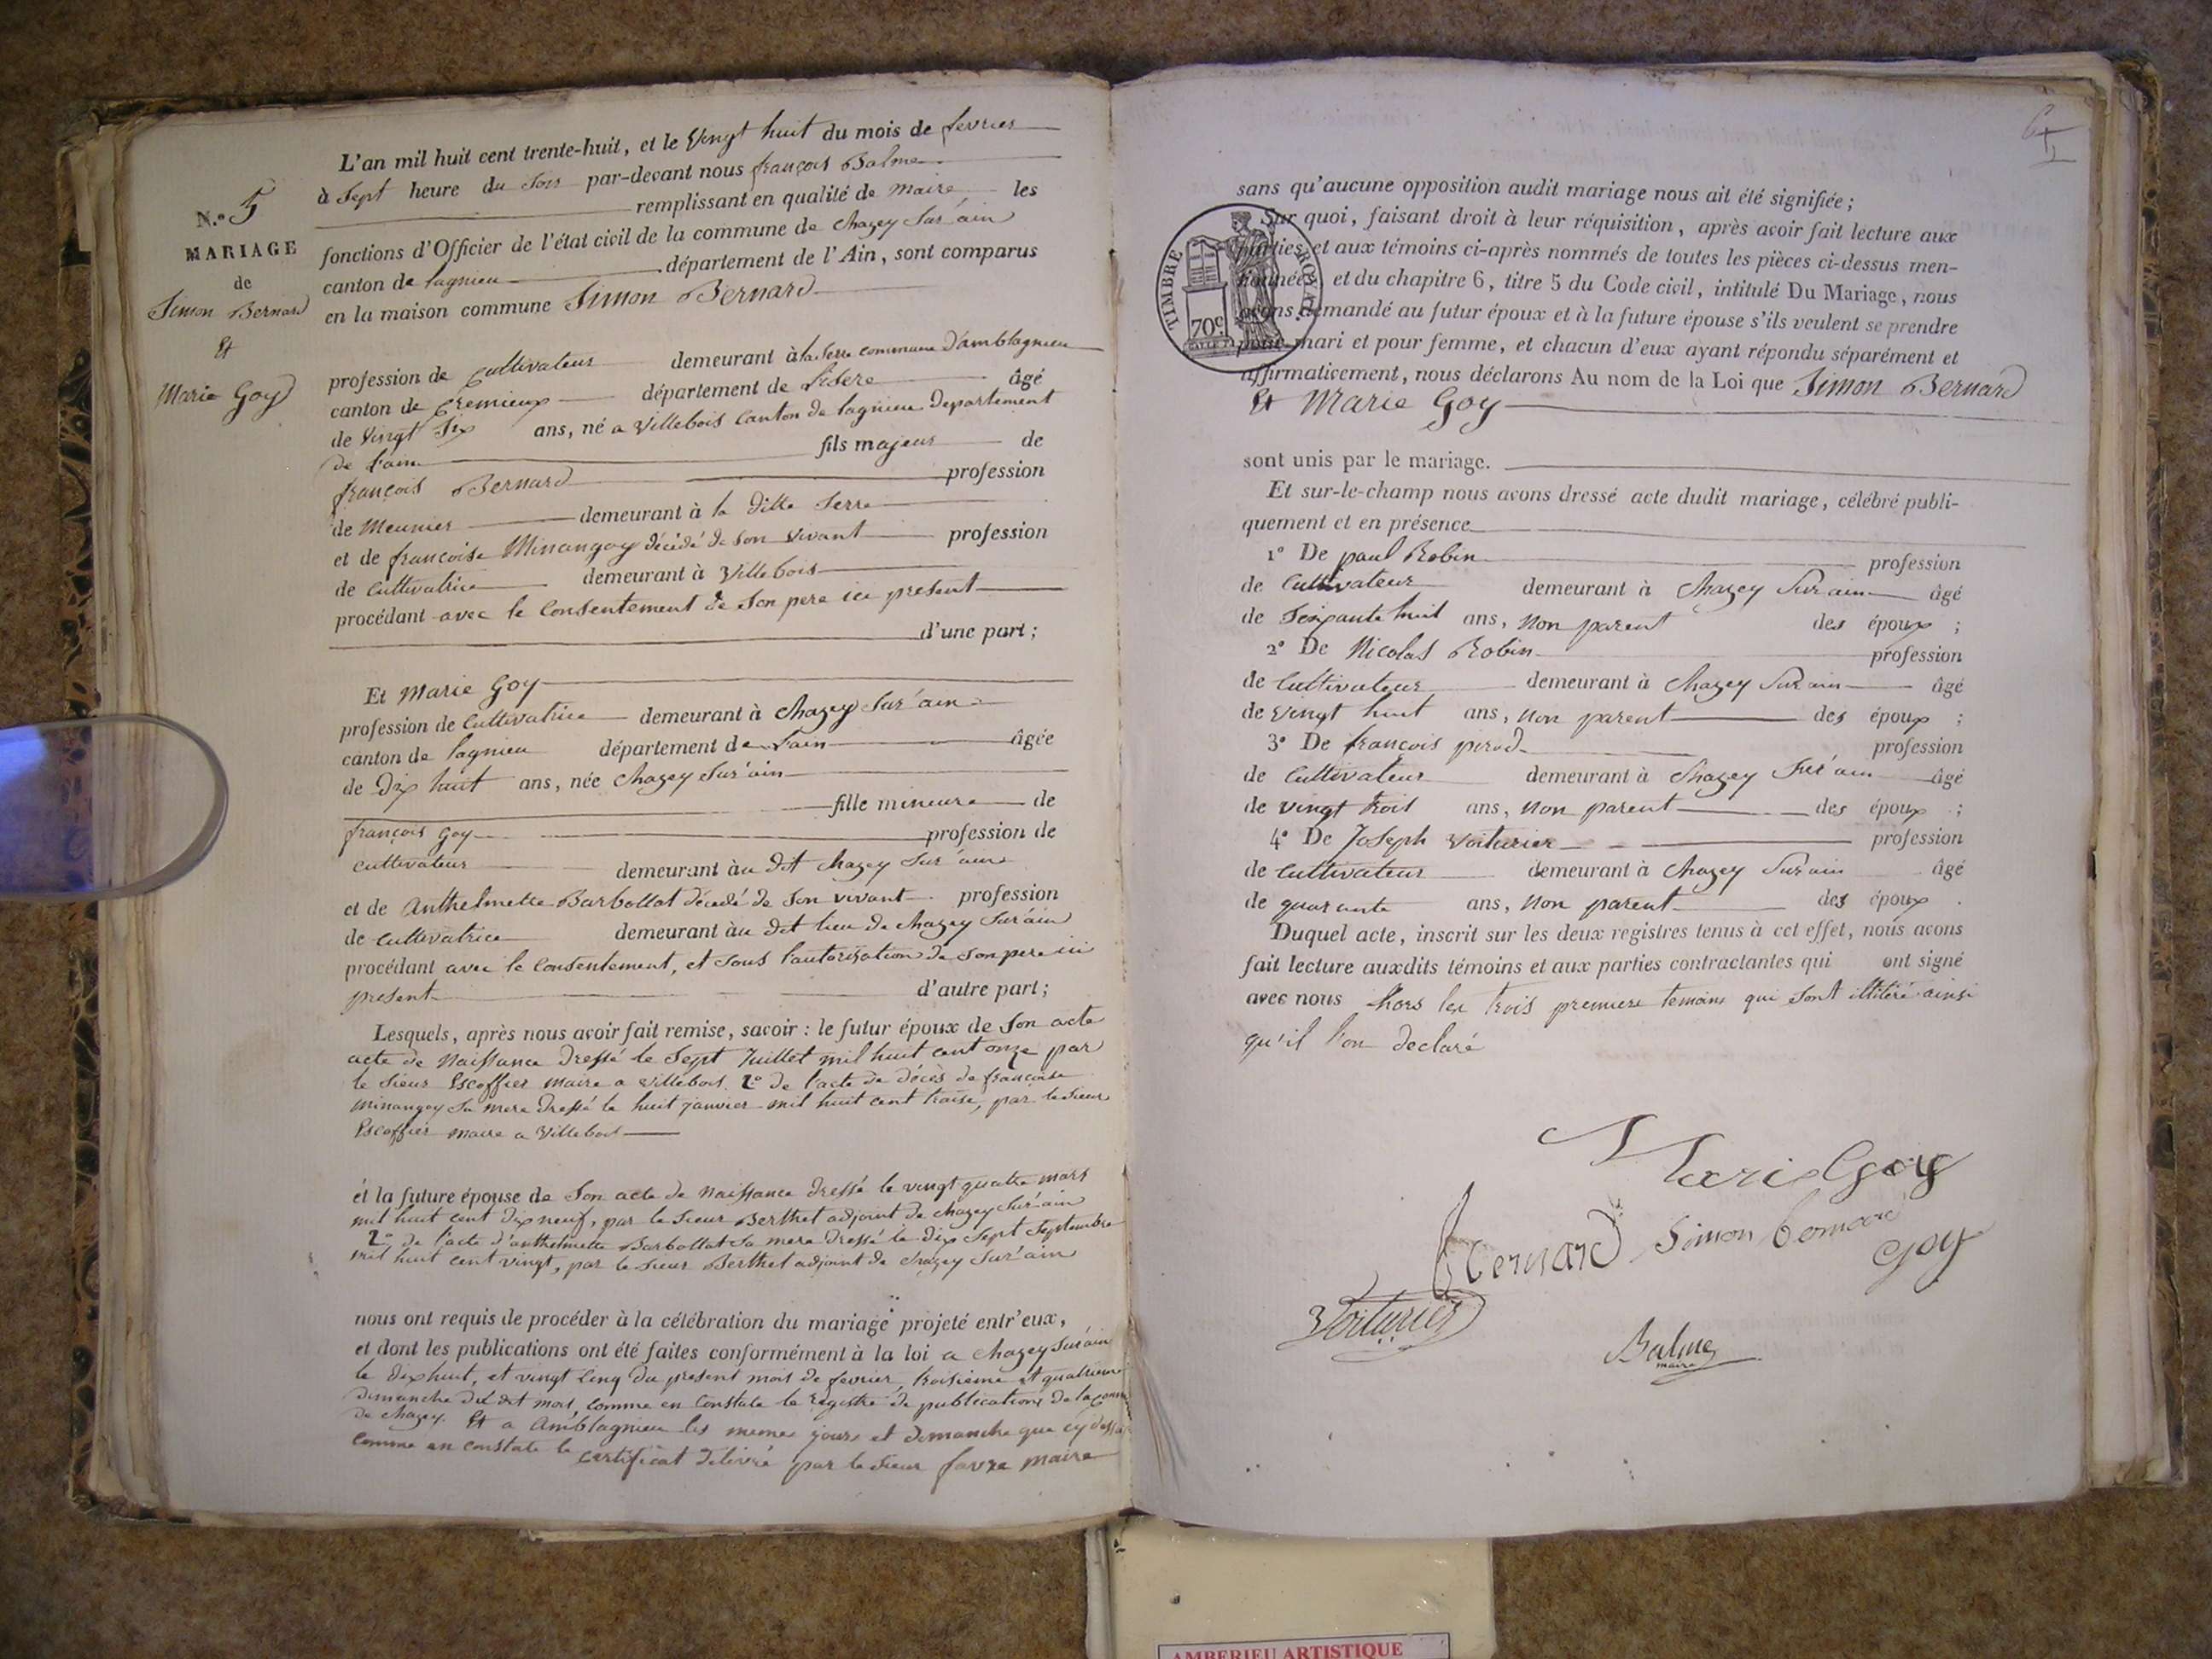 N.º 5
MARIAGE
de
Simon Bernard
Et
Marie Goy
L'an mil huit cent trente-huit, et le Vingt huit du mois de fevrier
à Sept heure du Soir par-devant nous françois Balme
remplissant en qualité de Maire les
fonctions d'Officier de l'état civil de la commune de Chazey Sur ain
canton de lagnieu département de l'Ain, sont comparus
en la maison commune Simon Bernard
profession de Cultivateur demeurant à la Serre commune D'amblagnieu
canton de Cremieux département de Lisere âgé
de Vingt Six ans, né a Villebois Canton de lagnieu Departement
de Lain fils majeur de
françois Bernard profession
de Meunier demeurant à la Ditte Serre
et de françoise Minangoy décédé de Son Vivant profession
de Cultivatrice demeurant à Villebois
procédant avec le Consentement de Son pere ici present
d'une part;
Et Marie Goy
profession de Cultivatrice demeurant à Chazey Sur'ain
canton de lagnieu département de Lain âgée
de Dix huit ans, née Chazey Sur'ain
fille mineure de
françois Goy profession de
cultivateur demeurant àu dit Chazey Sur ain
et de Anthelmette Barbollat décedé de Son vivant profession
de Cultivatrice demeurant àu dit lieu de Chazey Sur'ain
procédant avec le Consentement, et Sous l'autorisation de Son pere ici
present d'autre part;
Lesquels, après nous avoir fait remise, savoir : le futur époux de Son acte
acte de Naissance Dressé le Sept Juillet mil huit cent onze par
le Sieur Escoffier Maire a Villebois. 2º de l'acte de décès de françoise
Minangoy Sa mere Dressé le huit janvier mil huit cent traise, par le Sieur
Escoffier maire a Villebois
et la future épouse de Son acte de Naissance dressé le vingt quatre mars
mil huit cent dix neuf, par le Sieur Berthet adjoint de Chazey Sur'ain
2º de l'acte d'anthelmette Barbollat Sa mere dressé le dix Sept Septembre
mil huit cent vingt, par le Sieur Berthet adjoint de Chazey Sur'ain
nous ont requis de procéder à la célébration du mariage projeté entr'eux,
et dont les publications ont été faites conformément à la loi a Chazey Sur'ain
le dix huit, et vingt Cinq du present mois de fevrier, troisieme et quatrieme
dimanche du dit mois, comme en Constate le registre de publications de la
de Chazey. Et a Amblagnieu les memes jours et dimanche que cy
comme en constate le certificat délivré par le Sieur favre maire
sans qu'aucune opposition audit mariage nous ait été signifiée;
Sur quoi, faisant droit à leur réquisition, après avoir fait lecture aux
parties et aux témoins ci-après nommés de toutes les pièces ci-dessus men-
tionnées, et du chapitre 6, titre 5 du Code civil, intitulé Du Mariage, nous
avons demandé au futur époux et à la future épouse s'ils veulent se prendre
pour mari et pour femme, et chacun d'eux ayant répondu séparément et
affirmativement, nous déclarons Au nom de la Loi que Simon Bernard
Et Marie Goy
sont unis par le mariage.
Et sur-le-champ nous avons dressé acte dudit mariage, célébré publi-
quement et en présence
1º De paul Robin profession
de Cultivateur demeurant à Chazey Sur ain âgé
de Soixante huit ans, non parent des époux ;
2º De Nicolas Robin profession
de Cultivateur demeurant à Chazey Sur ain âgé
de Vingt huit ans, non parent des époux ;
3º De françois perod profession
de Cultivateur demeurant à Chazey Sur'ain âgé
de vingt trois ans, non parent des époux ;
4º De Joseph Voiturier profession
de Cultivateur demeurant à Chazey Sur ain âgé
de quarante ans, non parent des époux .
Duquel acte, inscrit sur les deux registres tenus à cet effet, nous avons
fait lecture auxdits témoins et aux parties contractantes qui ont signé
avec nous hors les trois premiers temoins qui Sont illitéré ainsi
qu'il l'on declaré
TIMBRE ROYAL
70c
Marie Goy
Bernard Simon bernard
Goy
Voiturier
Balme
maire
AMBERIEU ARTISTIQUE